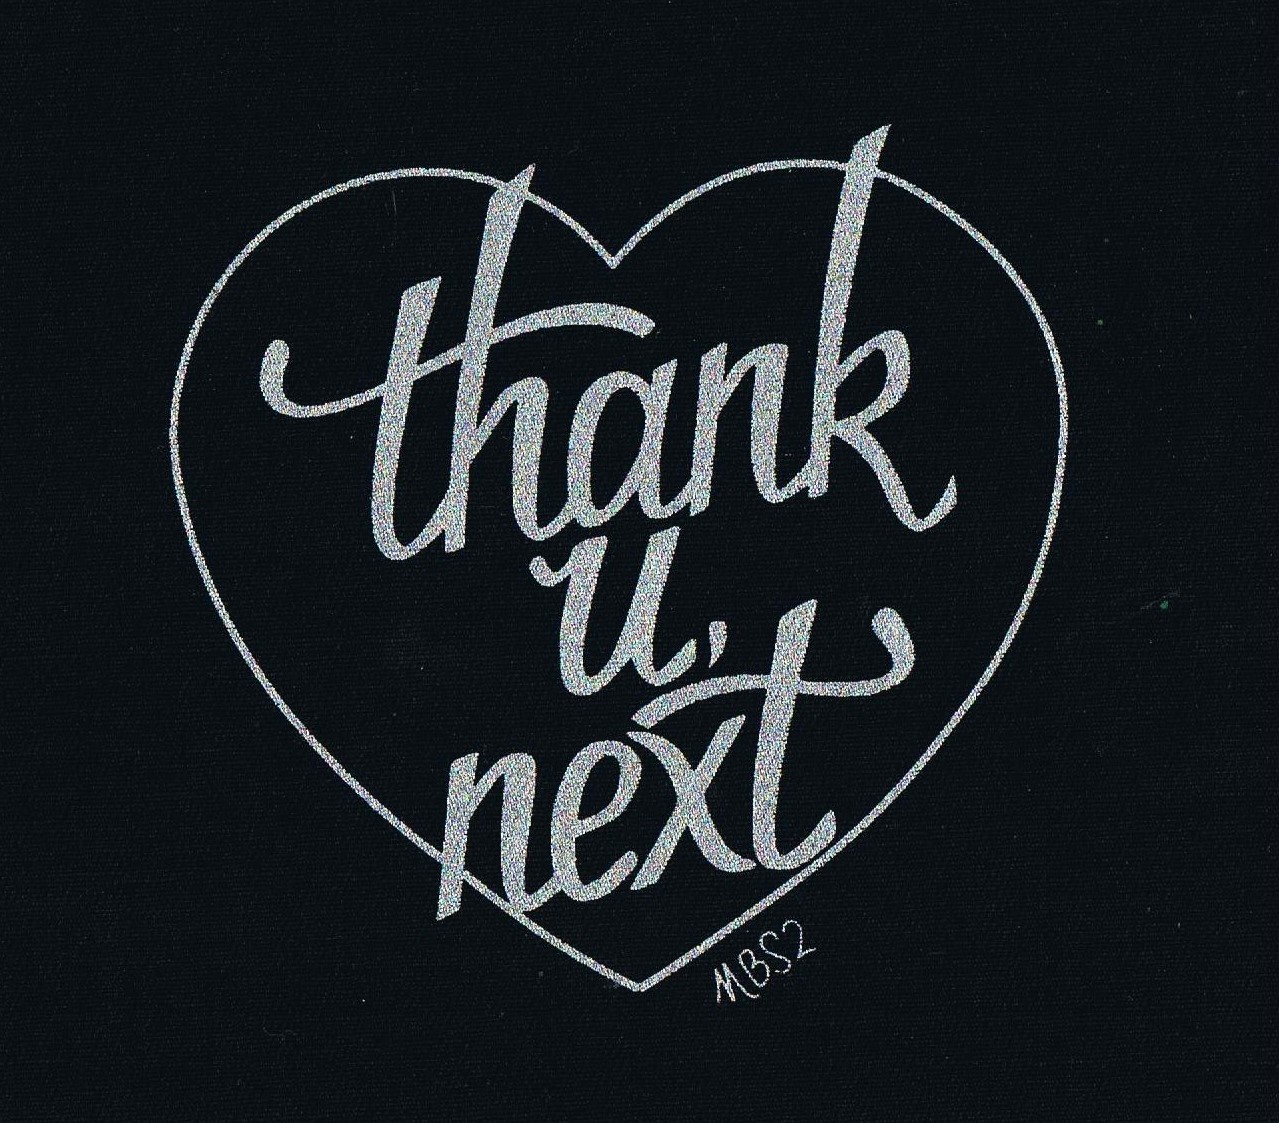 thank
u,
next
MBS2